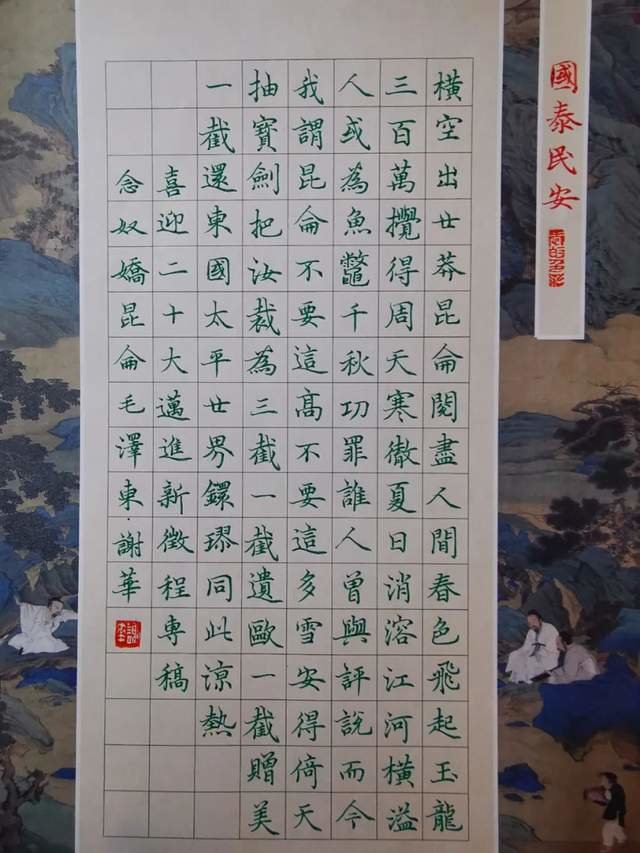 國泰民安
橫空出廿莽昆侖閱盡人間春色飛起玉龍
三百萬攪得周天寒徹夏日消溶江河橫溢
人或為魚鼈千秋功罪誰人曾與評說而今
我謂昆侖不要這高不要這多雪安得倚天
抽寶劍把汝裁為三截一截遺歐一截贈美
一截還東國太平廿界鐶璆同此涼熱
喜迎二十大邁進新徵程專稿
念奴嬌昆侖毛澤東·謝華